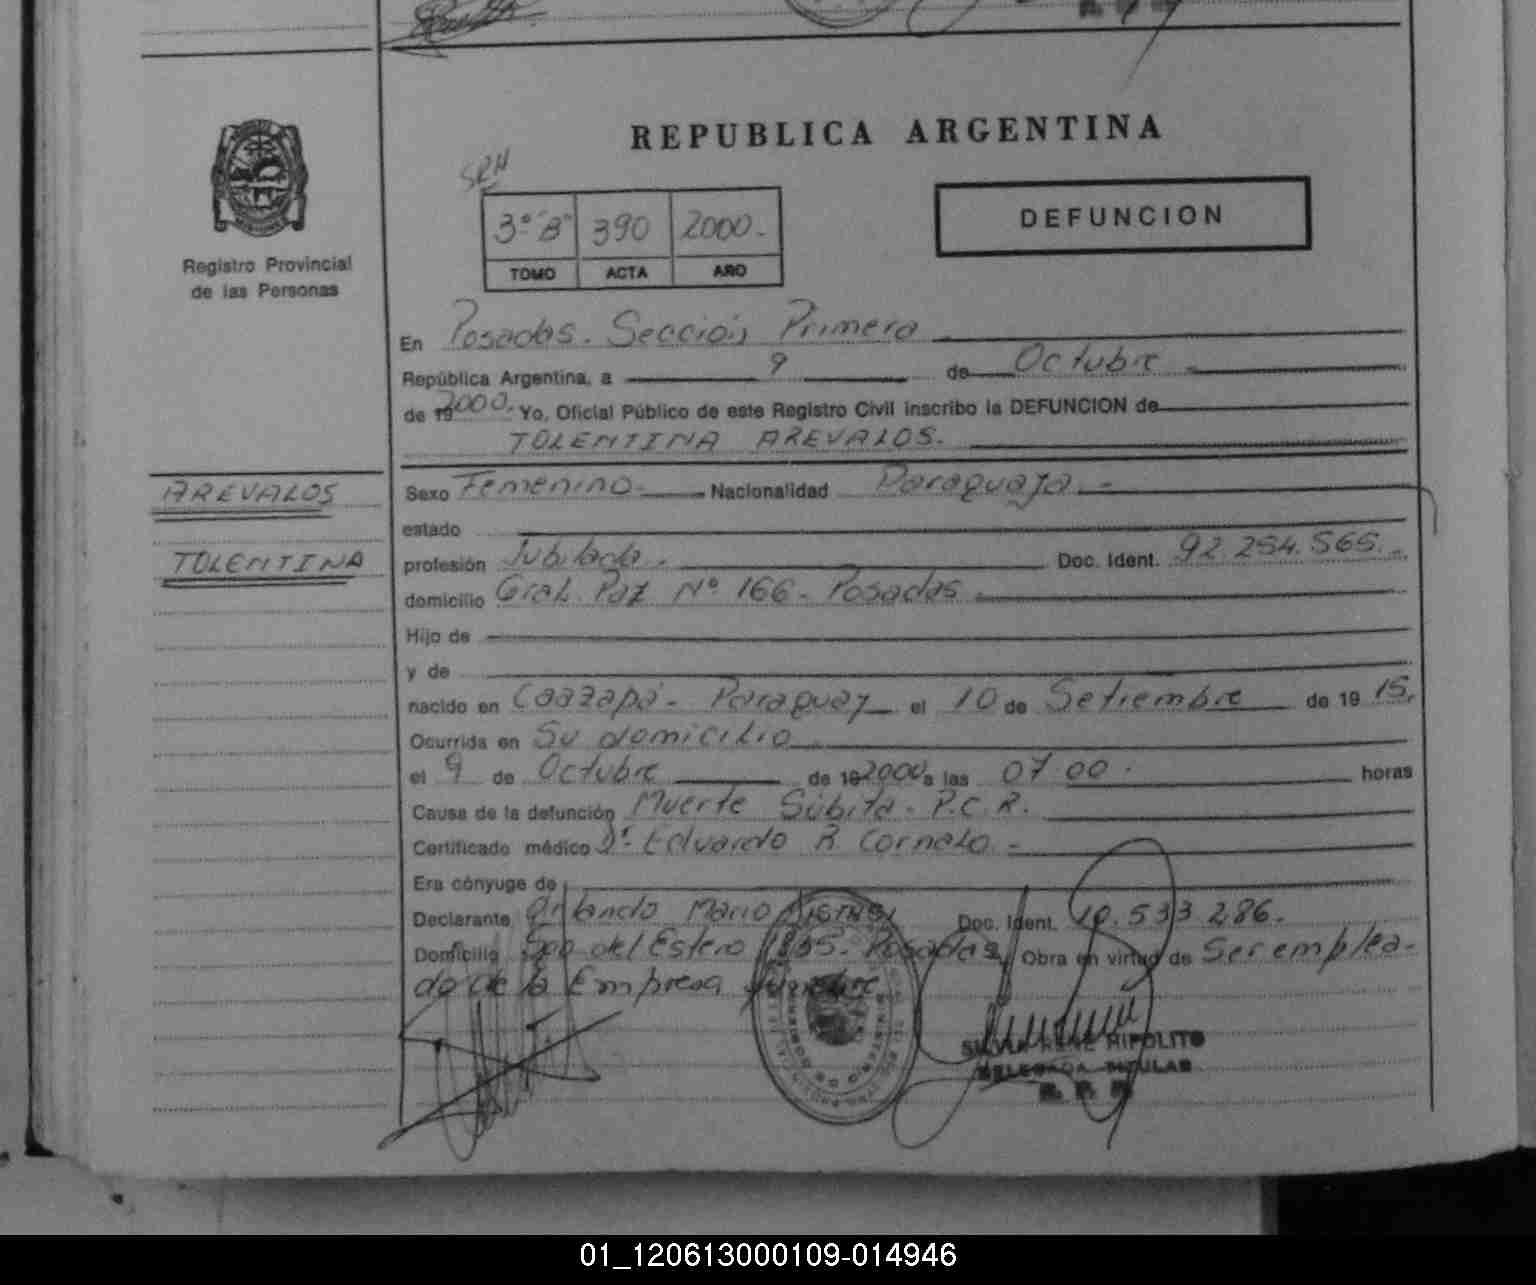 REPUBLICA ARGENTINA
SRH
3º "B" 390 2000.-
TOMO ACTA AÑO
DEFUNCION
Registro Provincial
de las Personas
En Posadas. Sección Primera
República Argentina, a 9 de Octubre
de 19 2000.- Yo, Oficial Público de este Registro Civil inscribo la DEFUNCION de
TOLENTINA AREVALOS.
AREVALOS
TOLENTINA
Sexo Femenino.- Nacionalidad Paraguaya.-
estado
profesión Jubilada. Doc. Ident. 92.254.565.-
domicilio Gral. Paz Nº 166 - Posadas
Hijo de
y de
nacido en Caazapá - Paraguay el 10 de Setiembre de 19 15.
Ocurrida en Su domicilio
el 9 de Octubre de 19 2000 a las 07 00. horas
Causa de la defunción Muerte Súbita - P.C.R.
Certificado médico Dr. Eduardo R.
Era cónyuge de
Declarante Orlando Mario Doc. Ident. 10.533.286.
Domicilio Sgo del Estero Posadas Obra en virtud de Ser emplea-
do de la Empresa
SILVIA RENE RIPOLITO
DELEGADA TITULAR
R. P. P.
01_120613000109-014946